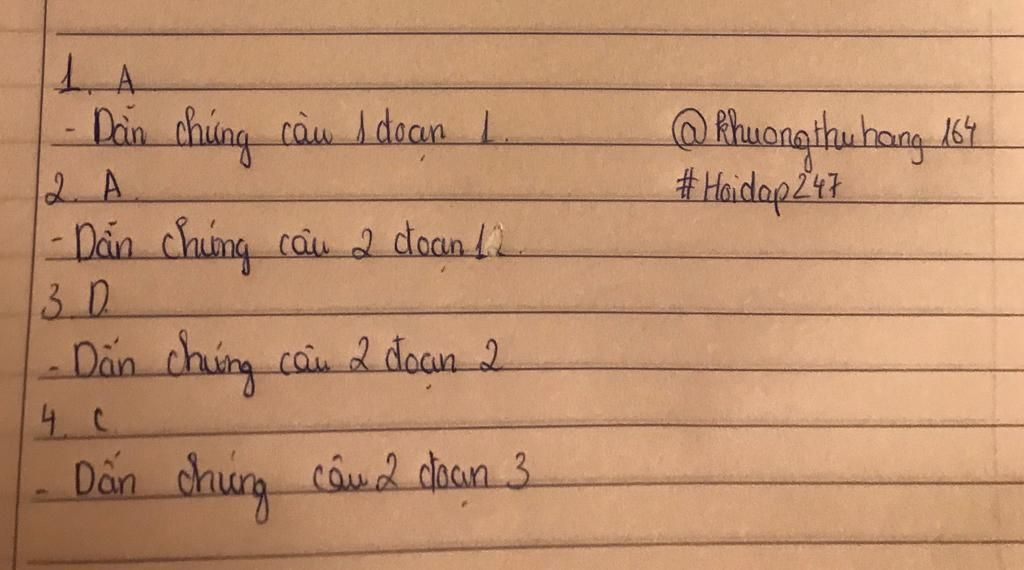 1. A
- Dẫn chứng câu 1 đoạn 1. @khuongthuhang 164
2. A #Hoidap247
- Dẫn chứng câu 2 đoạn 1.
3. D.
- Dẫn chứng câu 2 đoạn 2
4. C
- Dẫn chứng câu 2 đoạn 3